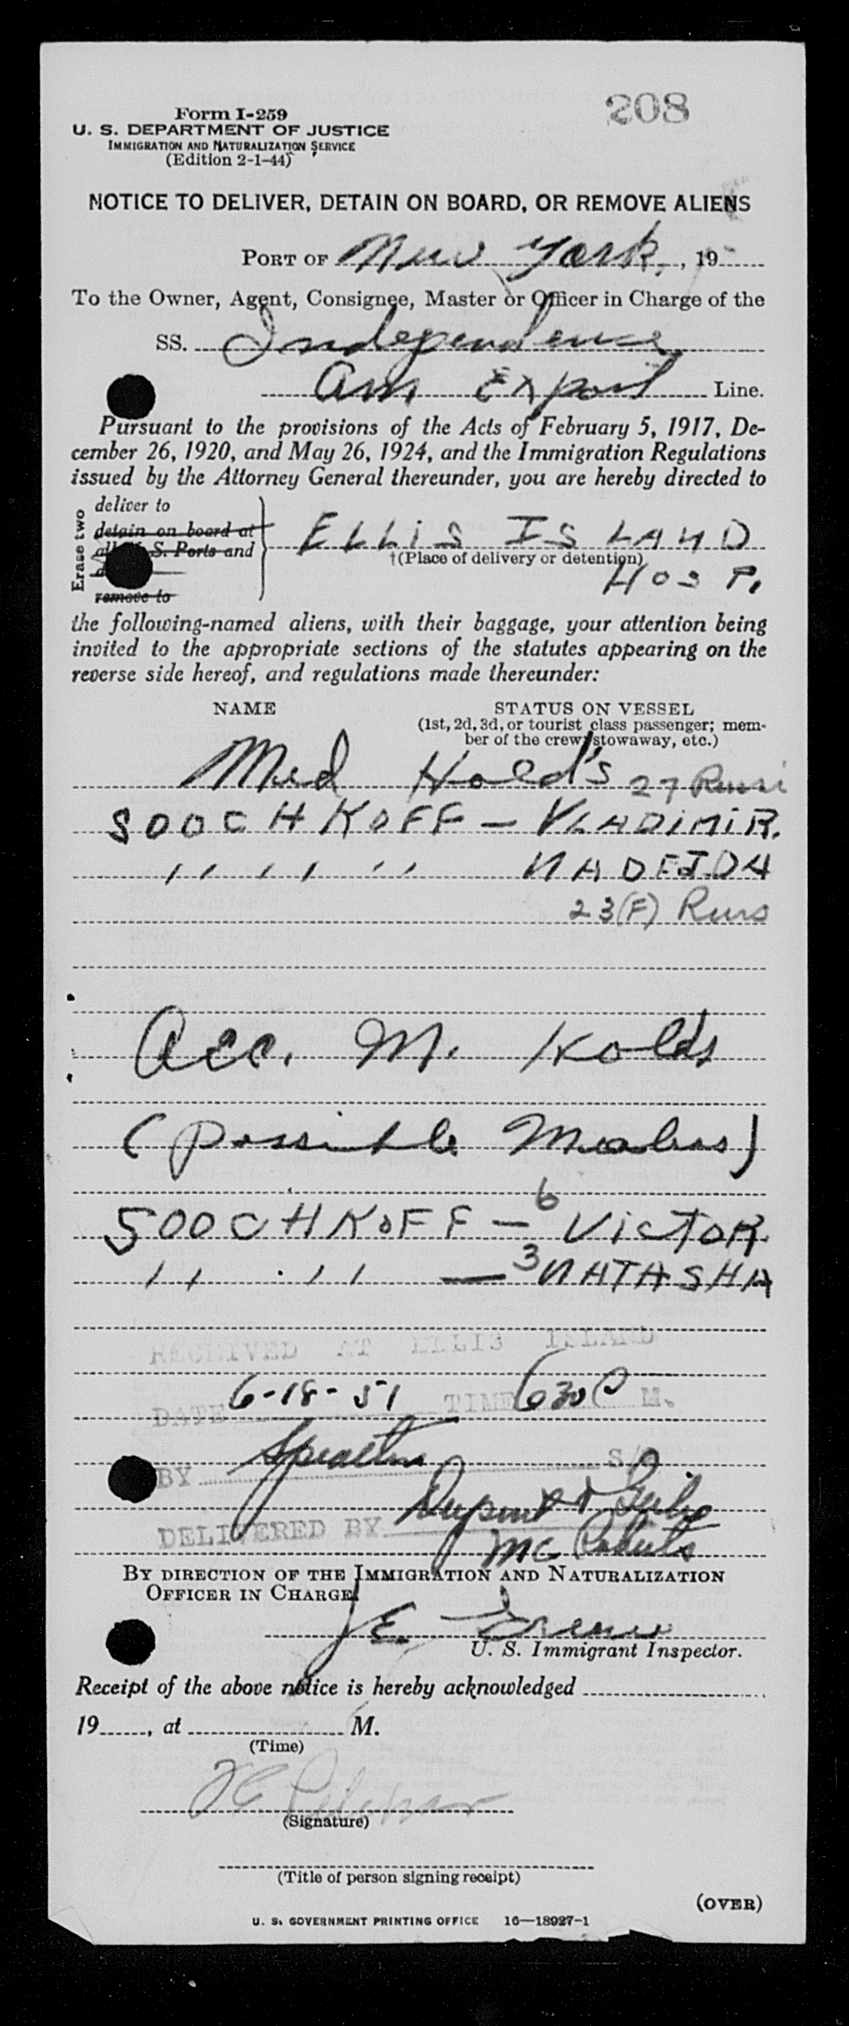 208
Form I-259
U. S. DEPARTMENT OF JUSTICE
IMMIGRATION AND NATURALIZATION SERVICE
(Edition 2-1-44)
NOTICE TO DELIVER, DETAIN ON BOARD, OR REMOVE ALIENS
PORT OF New York, , 19
To the Owner, Agent, Consignee, Master or Officer in Charge of the
SS. Independence
Am Export Line.
Pursuant to the provisions of the Acts of February 5, 1917, De-
cember 26, 1920, and May 26, 1924, and the Immigration Regulations
issued by the Attorney General thereunder, you are hereby directed to
Erase two
deliver to
detain on board at
S. Ports and
remove to
ELLIS ISLAND
†(Place of delivery or detention)
HOSP.
the following-named aliens, with their baggage, your attention being
invited to the appropriate sections of the statutes appearing on the
reverse side hereof, and regulations made thereunder:
NAME STATUS ON VESSEL
(1st, 2d, 3d, or tourist class passenger; mem-
ber of the crew, stowaway, etc.)
Med Hold's 27 Russ
SOOCHKOFF - VLADIMIR.
" " " NADEJDA
23 (F) Russ
Acc. M. Holds
(possible Measles)
SOOCHKOFF - 6 VICTOR
" " - 3 NATASHA
RECEIVED AT ELLIS ISLAND
DATE 6-18-51 TIME 630 P M.
BY
DELIVERED BY
BY DIRECTION OF THE IMMIGRATION AND NATURALIZATION
OFFICER IN CHARGE
J E
U. S. Immigrant Inspector.
Receipt of the above notice is hereby acknowledged
19, at M.
(Time)
(Signature)
(Title of person signing receipt)
(OVER)
U. S. GOVERNMENT PRINTING OFFICE 16—18927-1